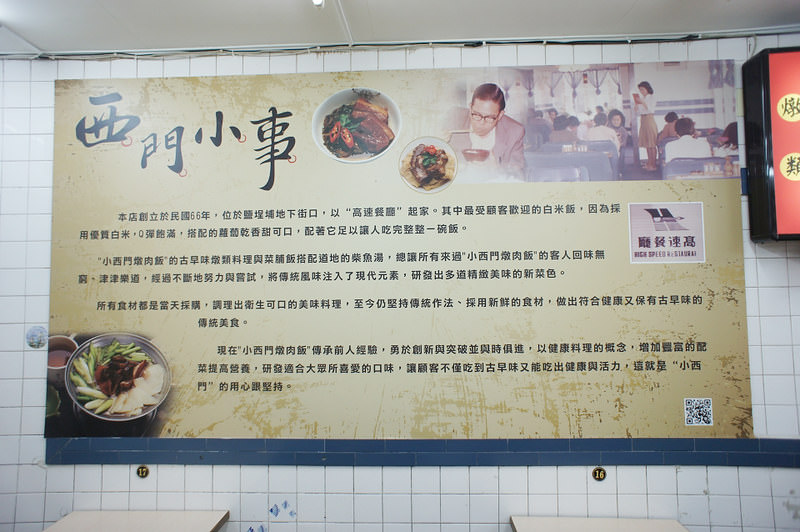 西門小事
本店創立於民國66年，位於鹽埕埔地下街口，以“高速餐廳”起家。其中最受顧客歡迎的白米飯，因為採
用優質白米，Q彈飽滿，搭配的蘿蔔乾香甜可口，配著它足以讓人吃完整整一碗飯。
廳餐速高
HIGH SPEED RESTAURAN
"小西門燉肉飯"的古早味燉類料理與菜脯飯搭配道地的柴魚湯，總讓所有來過"小西門燉肉飯"的客人回味無
窮、津津樂道，經過不斷地努力與嘗試，將傳統風味注入了現代元素，研發出多道精緻美味的新菜色。
所有食材都是當天採購，調理出衛生可口的美味料理，至今仍堅持傳統作法、採用新鮮的食材，做出符合健康又保有古早味的
傳統美食。
現在"小西門燉肉飯"傳承前人經驗，勇於創新與突破並與時俱進，以健康料理的概念，增加豐富的配
菜提高營養，研發適合大眾所喜愛的口味，讓顧客不僅吃到古早味又能吃出健康與活力，這就是“小西
門”的用心跟堅持。
燉
類
17
16